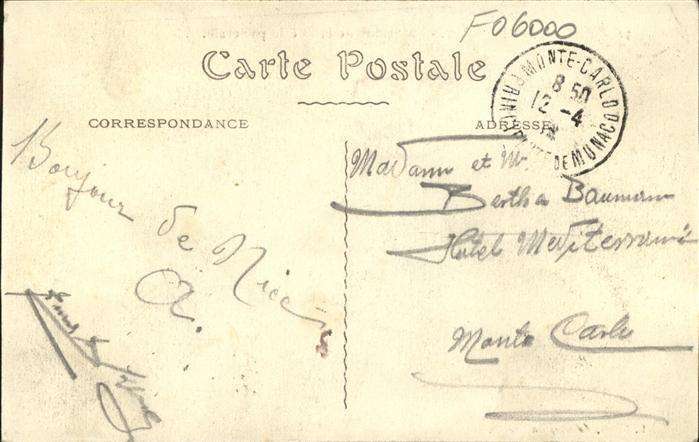 F06000
Carte Postale
CORRESPONDANCE
ADRESSE
MONTE-CARLO
8 50
12 -4
DE MONACO
Bonjour
de Nice
A.
Madame et Mr
Bertha Baumann
Hôtel Mediterrané
Monte Carlo